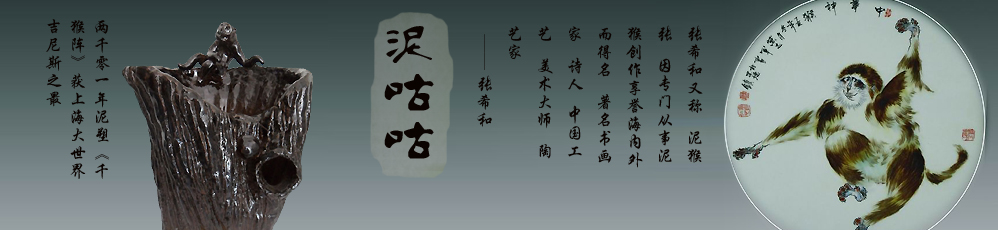 中华神猴
张希和又称 泥猴
张 因专门从事泥
猴创作享誉海内外
而得名 著名书画
家 诗人 中国工
艺 美术大师 陶
艺家
——张希和
泥咕咕
两千零一年泥塑《千
猴阵》获上海大世界
吉尼斯之最